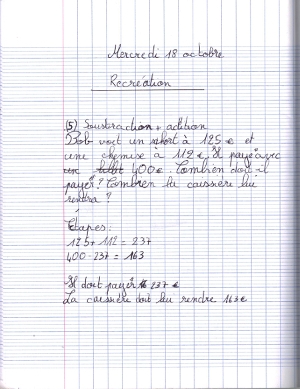 Mercredi 18 octobre
Recréation
(5) Soustraction + adition
Bob voit un short à 125 € et
une chemise à 112 €. Il paye avec
400 €. Combien doit-il
payer ? Combien la caissière lui
rendra ?
Etapes :
125 + 112 = 237
400 - 237 = 163
Il doit payer 237 €
La caissière doit lui rendre 163 €